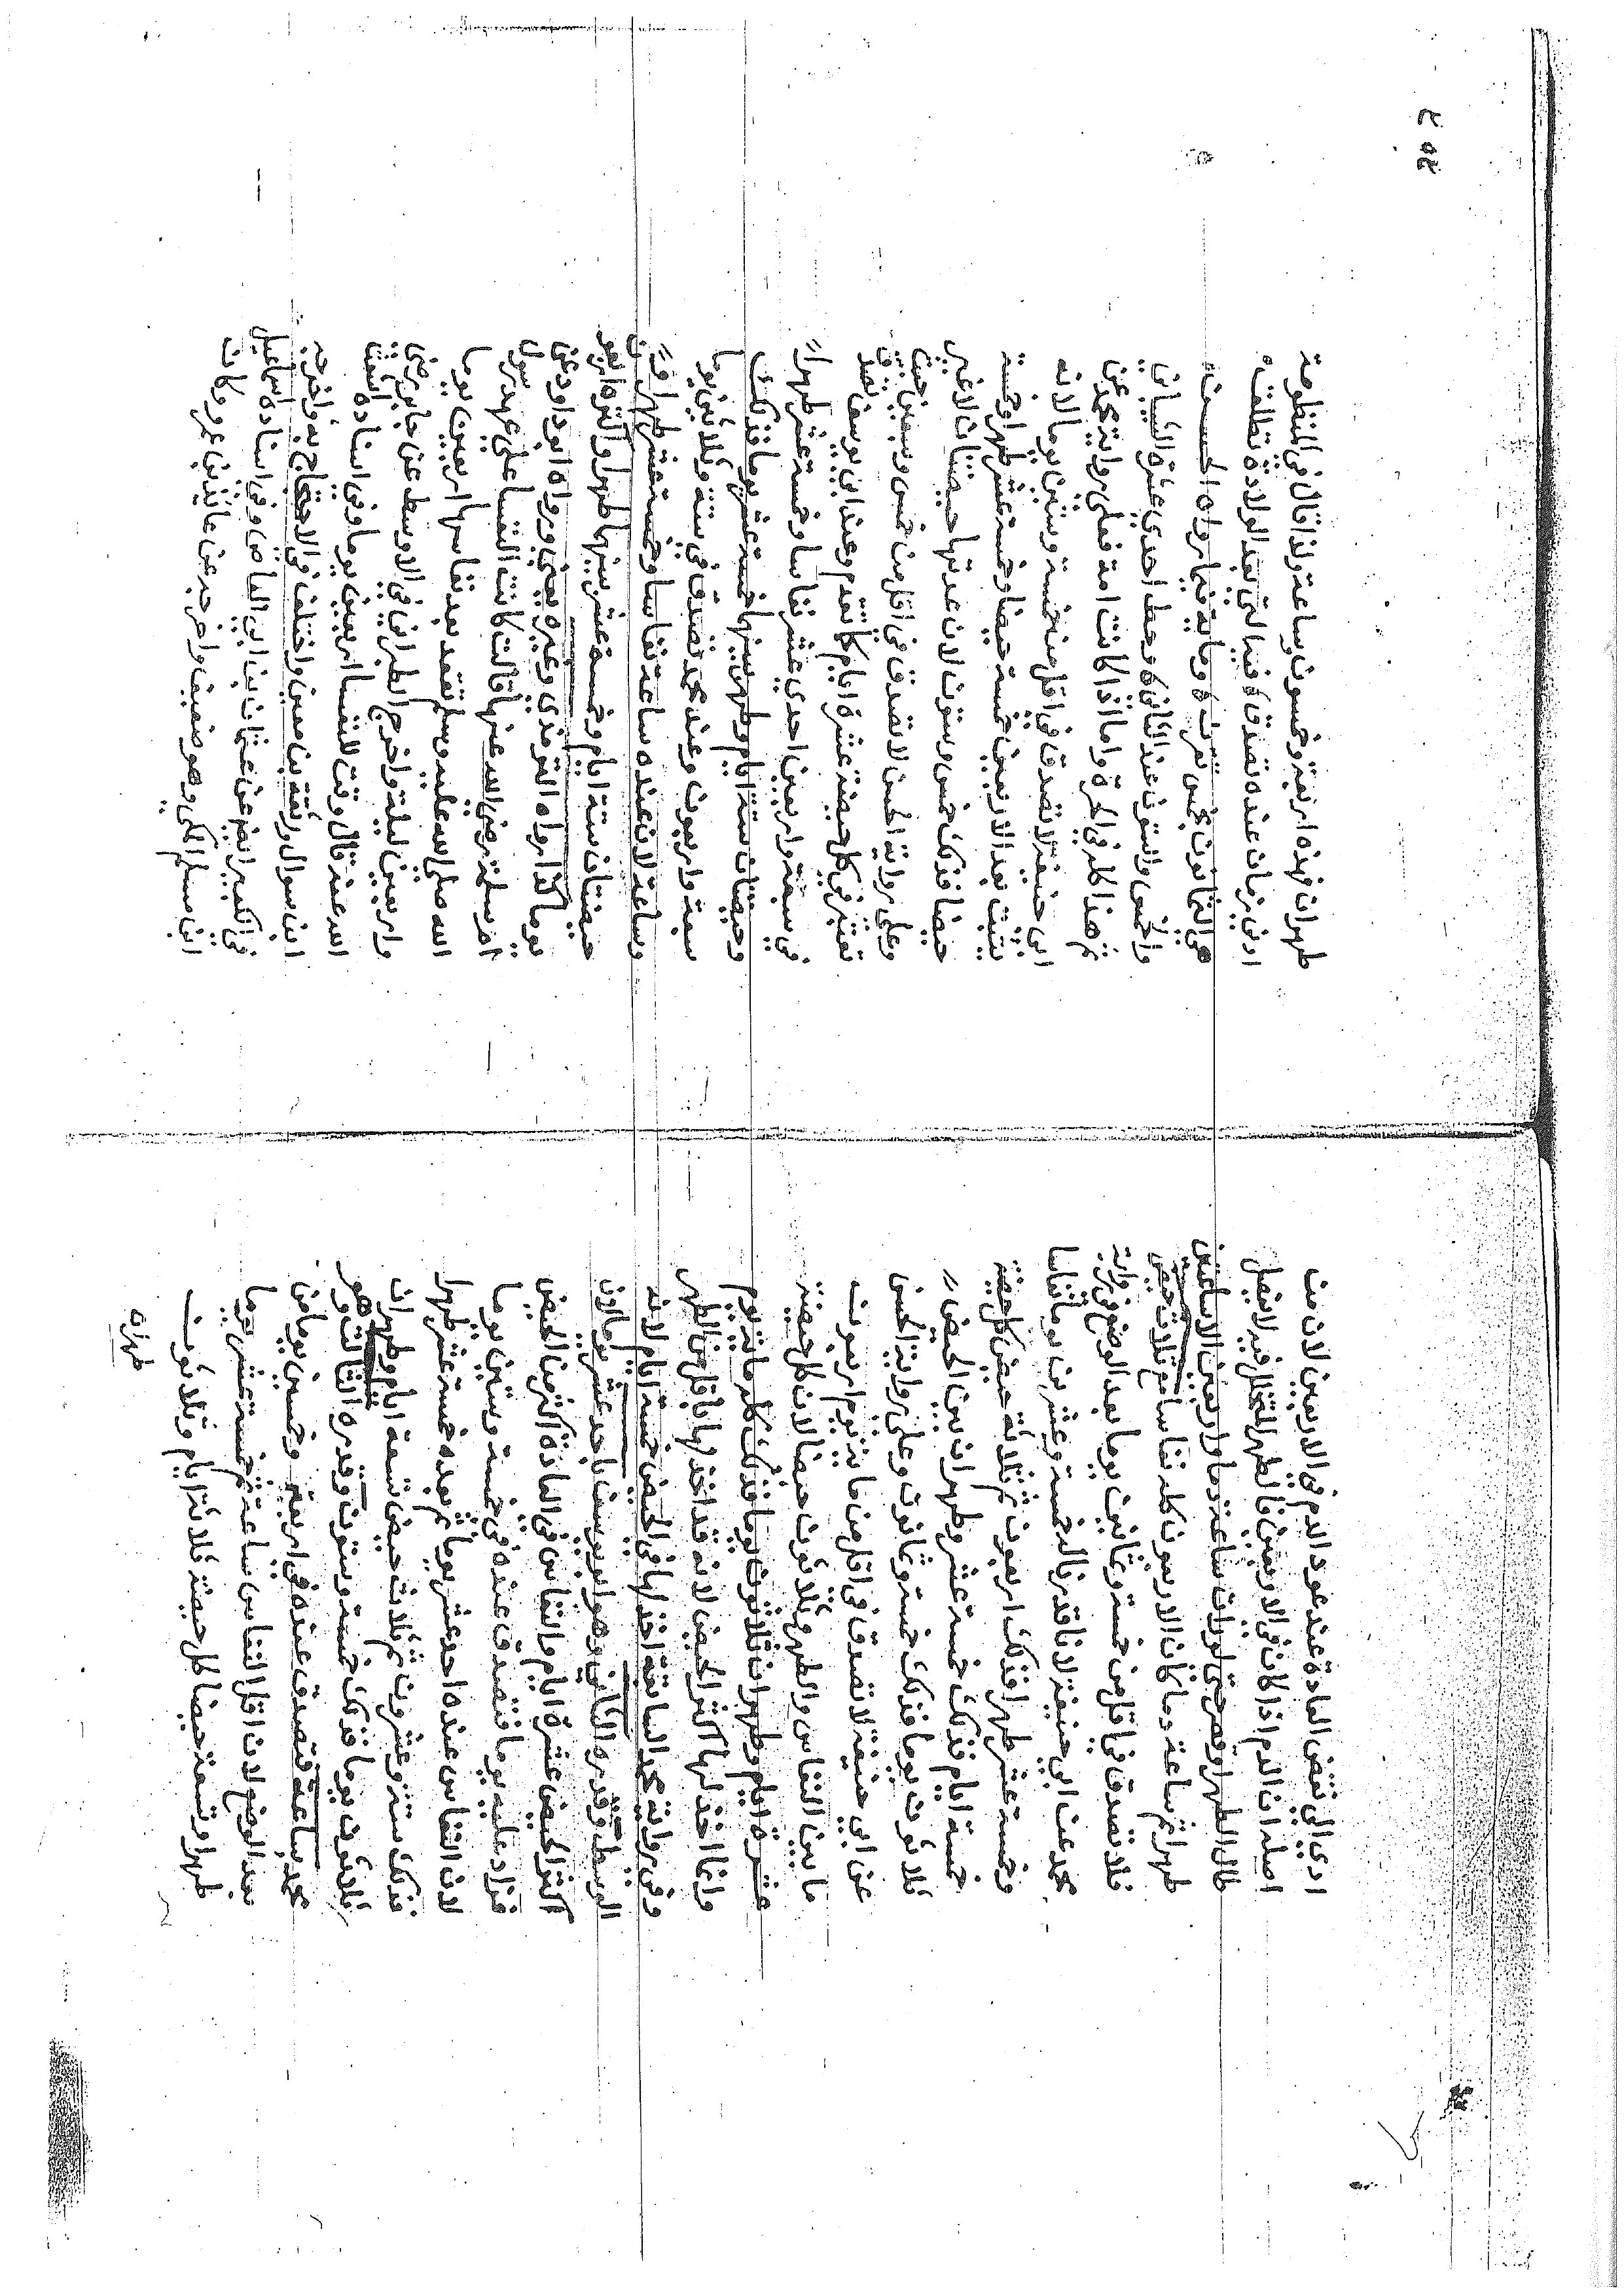 ادى الى نقض العادة عند عود الدم في الاربعين لان من
اصله ان الدم اذا كان في الاربعين فالطهر المتخلل فيه لا يفصل
طال الطهر او قصر حتى لو رات ساعة دما واربعين الا ساعتين
طهرا ثم ساعة دما كان الاربعون كله نفاسا ثم ثلاث حيض
فلا تصدق في اقل من خمسة وثمانين يوما بعد الوضع في رواية
محمد عن ابي حنيفة لانا قدرنا له خمسة وعشرين يوما نفاسا
وخمسة عشر طهرا فذلك اربعون ثم ثلاثة حيض كل حيضة
خمسة ايام فذلك خمسة عشر وطهران بين الحيض
ثلاثون يوما فذلك خمسة وثمانون وعلى رواية الحسن
عن ابي حنيفة لا تصدق في اقل من ماية يوم اربعون
ما بين النفاس والطهر وثلاثون حيضا لان كل حيضة
عشرة ايام وطهران ثلاثون يوما فذلك كله ماية يوم
وانما اخذ لها اكثر الحيض لانه قد اخذ لها باقل من الطهر
وفي رواية محمد السابقة اخذ لها في الحيض خمسة ايام لانه
الوسط وقدره الثاني وهو ابو يوسف باحد عشر يوما لان
اكثر الحيض عشرة ايام والنفاس في العادة اكثر من الحيض
فزاد عليه يوما فتصدق عنده في خمسة وستين يوما
لان النفاس عنده احد عشر يوما ثم بعده خمسة عشر طهرا
فذلك ستة وعشرون ثم ثلاث حيض تسعة ايام وطهران
ثلاثون يوما فذلك خمسة وستون وقدره الثالث وهو
محمد بساعة فتصدق عنده في اربعة وخمسين يوما من
بعد الوضع لان اقل النفاس ساعة ثم خمسة عشر يوما
طهرا وتسعة حيضا كل حيضة ثلاثة ايام وثلاثون
طهران
طهران فهذه اربعة وخمسون وساعة ولذا قال في المنظومة
ادنى زمان عنده تصدق فيه التي بعد الولادة تطلق
هي الثمانون بخمس تقرن وماية فيما رواه الحسن
والخمس والستون عند الثاني وحط احدى عشرة الشيباني
ثم هذا كله في الحرة واما اذا كانت امة فعلى رواية محمد عن
ابي حنيفة لا تصدق في اقل من خمسة وستين يوما لانه
يثبت بعد الاربعين خمسة حيضا وخمسة عشر طهرا وخمسة
حيضا فذلك خمس وستون لان عدتها حيضتان لا غير
وعلى رواية الحسن لا تصدق في اقل من خمس وسبعين حيث
تعتبر كل حيضة عشرة ايام كما تقدم وعند ابي يوسف تصدق
في سبعة واربعين احدى عشر نفاسا وخمسة عشر طهرا
وحيضتان ستة ايام وطهر بينهما خمسة عشر يوما فذلك
سبعة واربعون وعند محمد تصدق في ستة وثلاثين يوما
وساعة لان عنده ساعة نفاسا وخمسة عشر طهرا
حيضتان ستة ايام وخمسة عشر بينهما طهرا واكثره اربعون
يوما كذا رواه الترمذي وغيره يعني ورواه ابو داود عن
ام سلمة رضي الله عنها قالت كانت النفساء على عهد رسول
الله صلى الله عليه وسلم تقعد بعد نفاسها اربعين يوما
واربعين ليلة واخرج الطبراني في الاوسط عن جابر رضي
الله عنه قال وقت للنفساء اربعين يوما وفي اسناده اشعث
ابن سوار وثقه بن معين واختلف في الاحتجاج به واخرجه
في الكبير ايضا عن عثمان بن ابي العاص وفي اسناده اسماعيل
ابن مسلم المكي وهو ضعيف واخرجه عن عائذ بن عمرو وكان